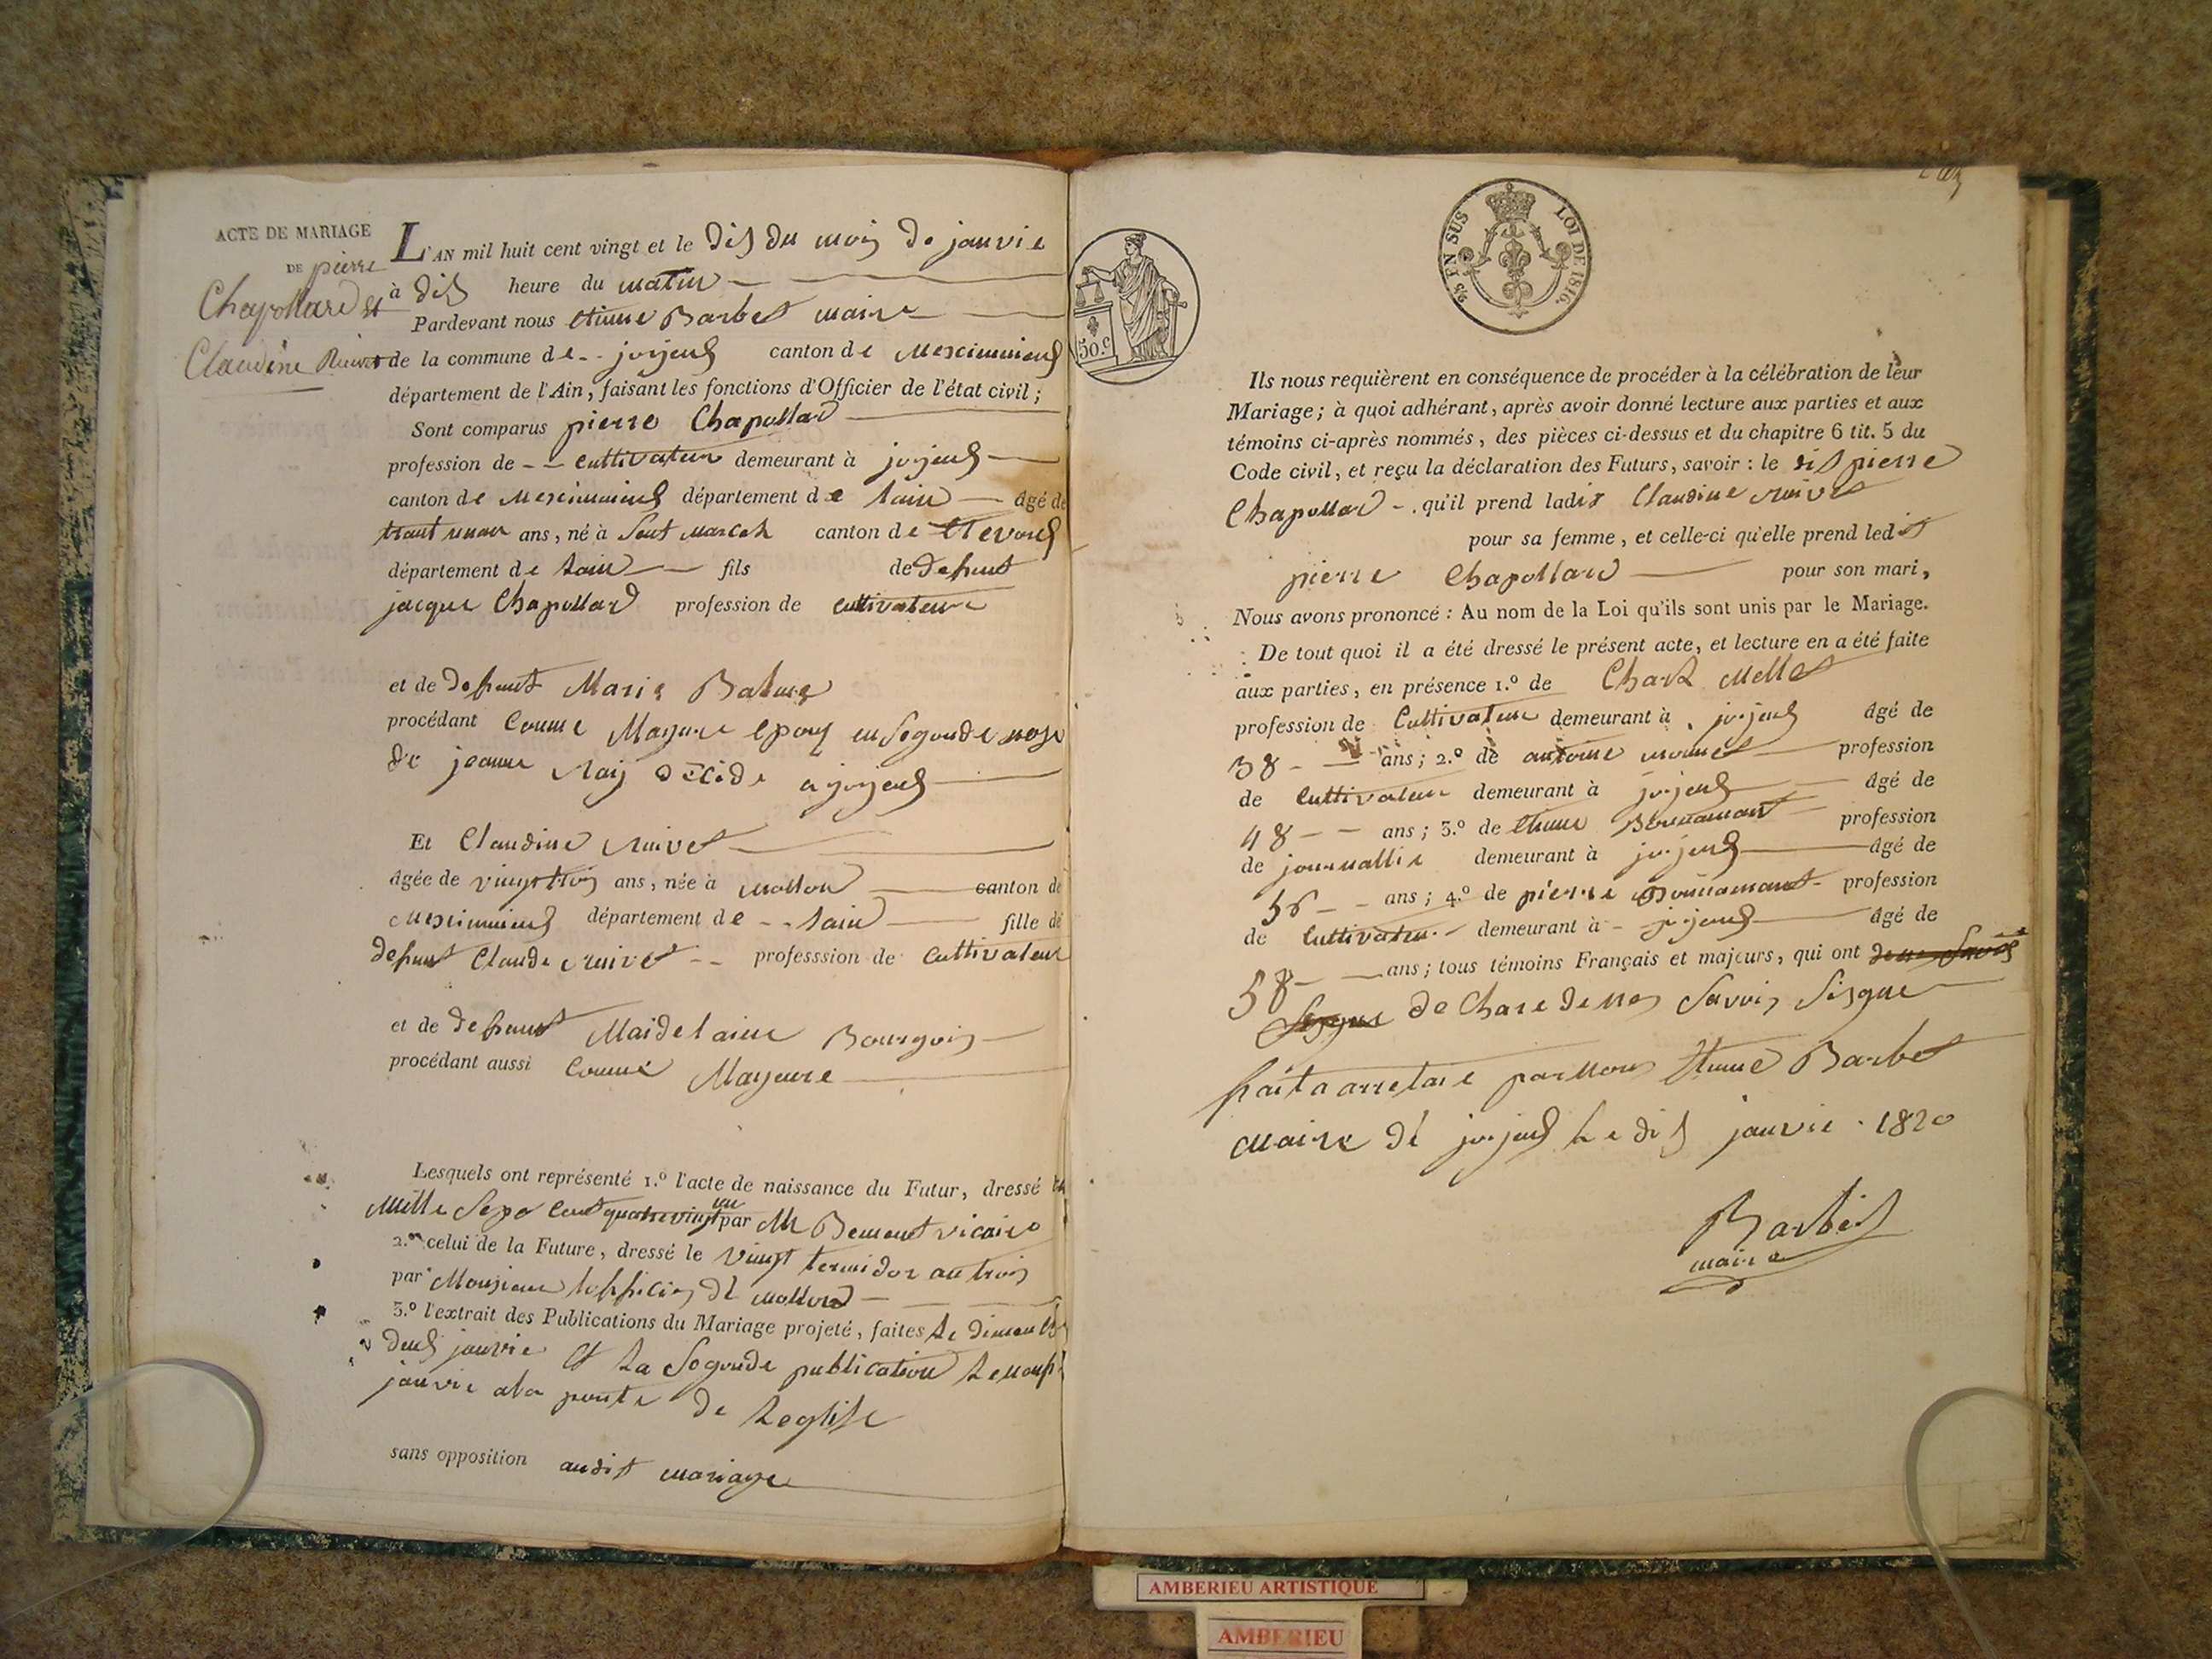 ACTE DE MARIAGE
DE pierre
Chapollard et
Claudine
L'AN mil huit cent vingt et le dis du mois de janvie
à dis heure du matin
Pardevant nous etinne Barbet maire
de la commune de joyeus canton de Meximieus
département de l'Ain, faisant les fonctions d'Officier de l'état civil;
Sont comparus pierre Chapollard
profession de cultivateur demeurant à joyeus
canton de Meximieus département de lain âgé de
ans, né à canton de
département de lain fils de defunt
jacque Chapollard profession de cultivateure
et de defunt Marie
procédant comme Majeure epoux en segonde nose
de jeanne décéde a joyeus
Et Claudine
âgée de vingt trois ans, née à mollon canton de
Meximieus département de lain fille de
defunt Claude profession de cultivateur
et de defunt Maidelaine Bourgois
procédant aussi comme Majeure
Lesquels ont représenté 1.º l'acte de naissance du Futur, dressé
mille sept cent quatre vingt par Mr vicaire
2.º celui de la Future, dressé le vingt termidor an trois
par Monsieur de mollon
3.º l'extrait des Publications du Mariage projeté, faites le dimanch
deus janvie et la segonde publication le neuf
janvie ala porte de leglise
sans opposition audit mariage
50.c
25/c EN SUS LOI DE 1816.
Ils nous requièrent en conséquence de procéder à la célébration de leur
Mariage; à quoi adhérant, après avoir donné lecture aux parties et aux
témoins ci-après nommés, des pièces ci-dessus et du chapitre 6 tit. 5 du
Code civil, et reçu la déclaration des Futurs, savoir: le dit pierre
Chapollard qu'il prend ladit Claudine
pour sa femme, et celle-ci qu'elle prend ledit
pierre Chapollard pour son mari,
Nous avons prononcé: Au nom de la Loi qu'ils sont unis par le Mariage.
De tout quoi il a été dressé le présent acte, et lecture en a été faite
aux parties, en présence 1.º de
profession de Cultivateur demeurant à joyeus âgé de
38 ans; 2.º de antoine profession
de cultivateur demeurant à joyeus âgé de
48 ans; 3.º de etinne profession
de journallie demeurant à joyeus âgé de
56 ans; 4.º de pierre profession
de cultivateur demeurant à joyeus âgé de
58 ans; tous témoins Français et majeurs, qui ont
de Clare de nes savoir signe
fait a arretare par nous etinne Barbet
maire de joyeus le dis janvie 1820
Barbet
maire
AMBERIEU ARTISTIQUE
AMBERIEU